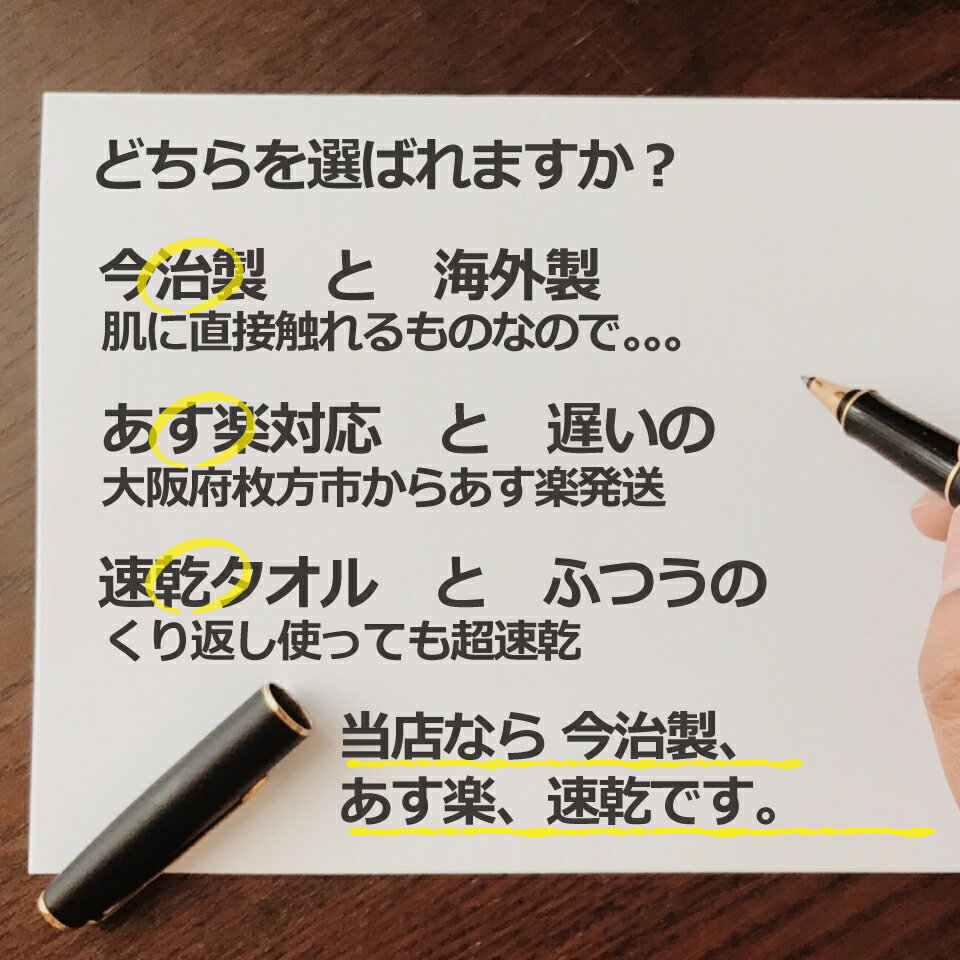 どちらを選ばれますか？
今治製　と　海外製
肌に直接触れるものなので。。。
あす楽対応　と　遅いの
大阪府枚方市からあす楽発送
速乾タオル　と　ふつうの
くり返し使っても超速乾
当店なら 今治製、
あす楽、速乾です。